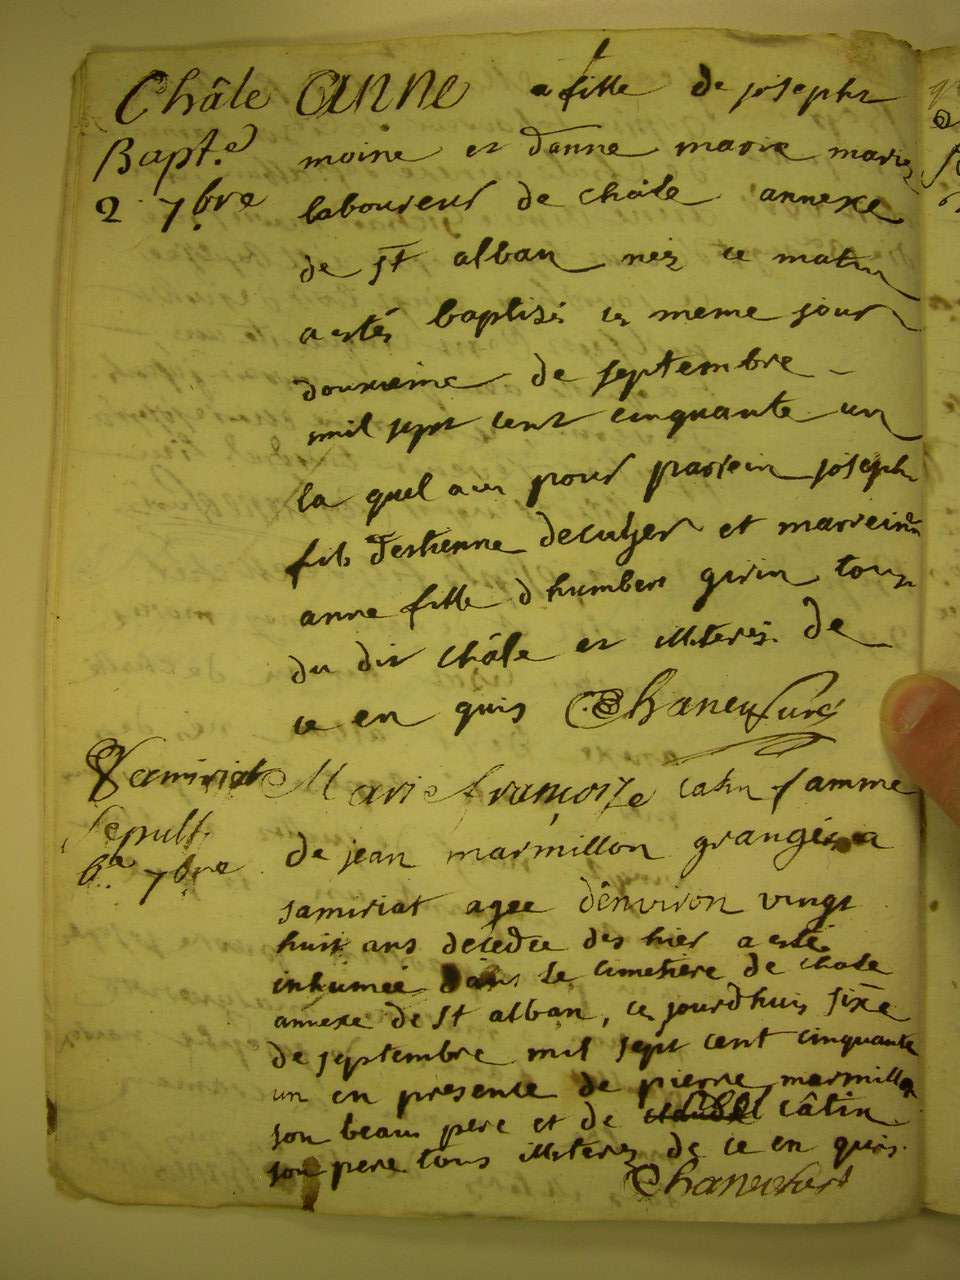 Châle
Bapt.e
2 7bre
Anne fille de joseph
moine et d'anne marie
laboureur de châle annexe
de St alban nez ce matin
a estés baptisés ce meme jour
douxieme de septembre
mil sept cent cinquante un
la quel a eu pour parrein joseph
fils d'estienne decuzer et marreinne
anne fille d humbert girin tous
du dit châle et illiterés de
ce en quis Chaneussure
Samiriat
Sepult.
6.e 7bre
Marie françoise catin famme
de jean marmillon granger a
samiriat agee d'environ vingt
huit ans decedee des hier a esté
inhumée dans le cimetiere de chale
annexe de St alban, ce jourdhuis sixme
de septembre mil sept cent cinquante
un en presence de pierre marmillon
son beau pere et de câtin
son pere tous illiterez de ce en quis.